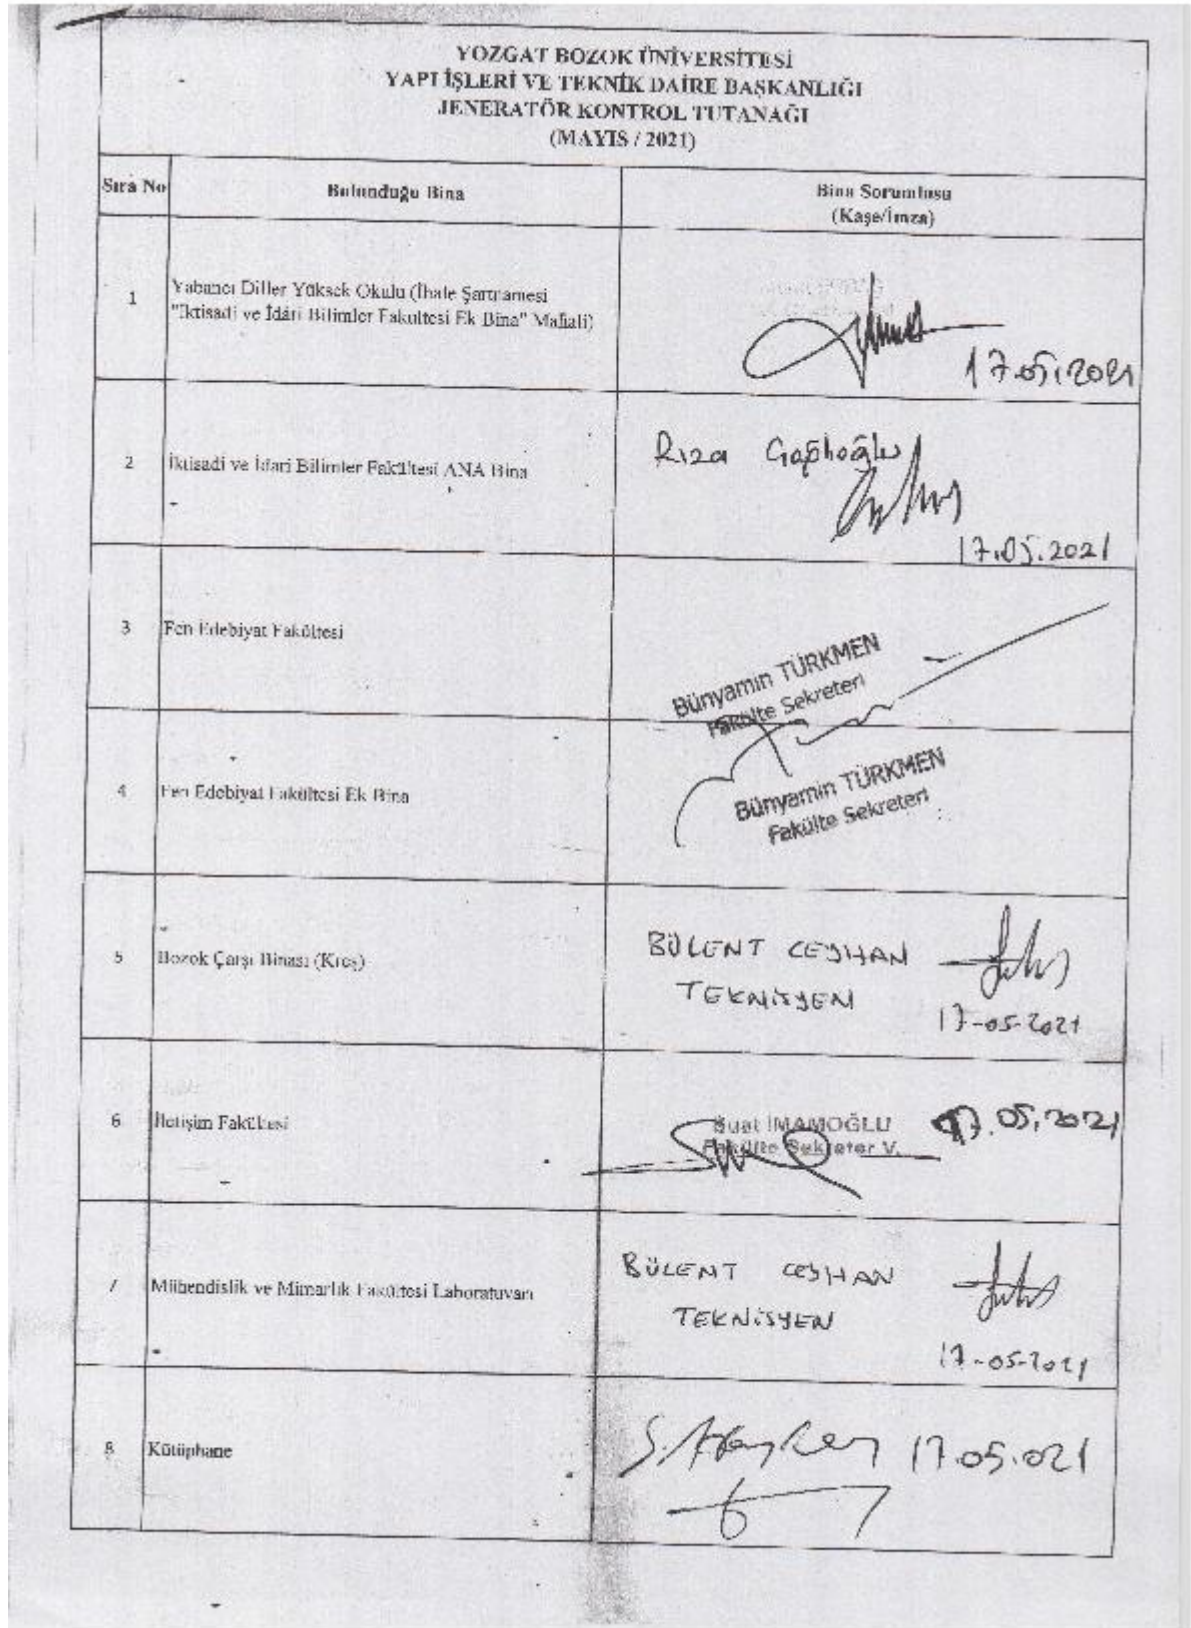 YOZGAT BOZOK ÜNİVERSİTESİ
YAPI İŞLERİ VE TEKNİK DAİRE BAŞKANLIĞI
JENERATÖR KONTROL TUTANAĞI
(MAYIS / 2021)
Sıra No
Bulunduğu Bina
Bina Sorumlusu
(Kaşe/İmza)
1
Yabancı Diller Yüksek Okulu (İhale Şartnamesi
"İktisadi ve İdari Bilimler Fakültesi Ek Bina" Mahali)
17.05.2021
2
İktisadi ve İdari Bilimler Fakültesi ANA Bina
Rıza
17.05.2021
3
Fen Edebiyat Fakültesi
Bünyamin TÜRKMEN
Fakülte Sekreteri
4
Fen Edebiyat Fakültesi Ek Bina
Bünyamin TÜRKMEN
Fakülte Sekreteri
5
Bozok Çarşı Binası (Kreş)
BÜLENT CEYHAN
TEKNİSYEN
17-05-2021
6
İletişim Fakültesi
Suat İMAMOĞLU
Fakülte Sekreter V.
17.05.2021
7
Mühendislik ve Mimarlık Fakültesi Laboratuvarı
BÜLENT CEYHAN
TEKNİSYEN
17-05-2021
8
Kütüphane
17.05.021